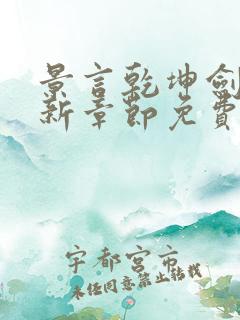 景言乾坤劍
新章節免費
宇都宮市
未经同意禁止转载